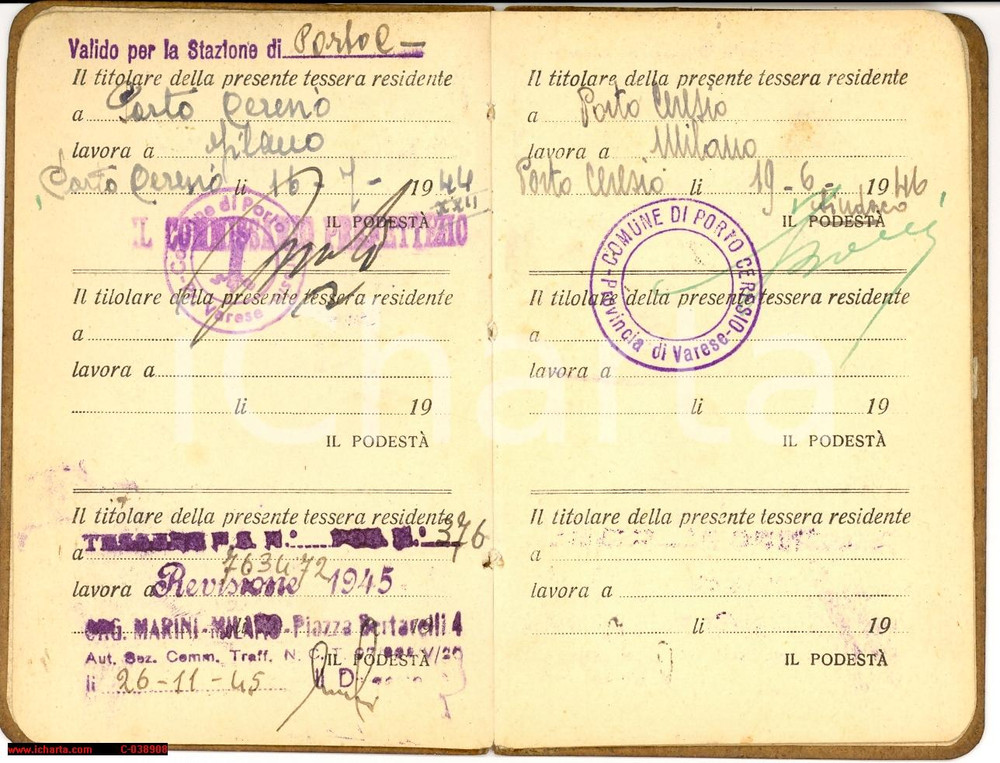 Valido per la Stazione di
Il titolare della presente tessera residente
a Porto Ceresio
lavora a Milano
Porto Ceresio li 16 - 7 - 1944
XXII
IL PODESTÀ
IL COMMISSARIO PREFETTIZIO
Comune di Porto
Varese
Il titolare della presente tessera residente
a
lavora a
li 19
IL PODESTÀ
Il titolare della presente tessera residente
376
a
763472
lavora a Revisione 1945
ORG. MARINI - MILANO - Piazza Bertarelli 4
Aut. Sez. Comm. Traff. N. C. T.
IL PODESTÀ
li 26-11-45
Il titolare della presente tessera residente
a Porto Ceresio
lavora a Milano
Porto Ceresio li 19 - 6 - 1946
Sindaco
IL PODESTÀ
COMUNE DI PORTO CERESIO
Provincia di Varese
Il titolare della presente tessera residente
a
lavora a
li 19
IL PODESTÀ
Il titolare della presente tessera residente
a
lavora a
li 19
IL PODESTÀ
iCharta
www.icharta.com C-038908